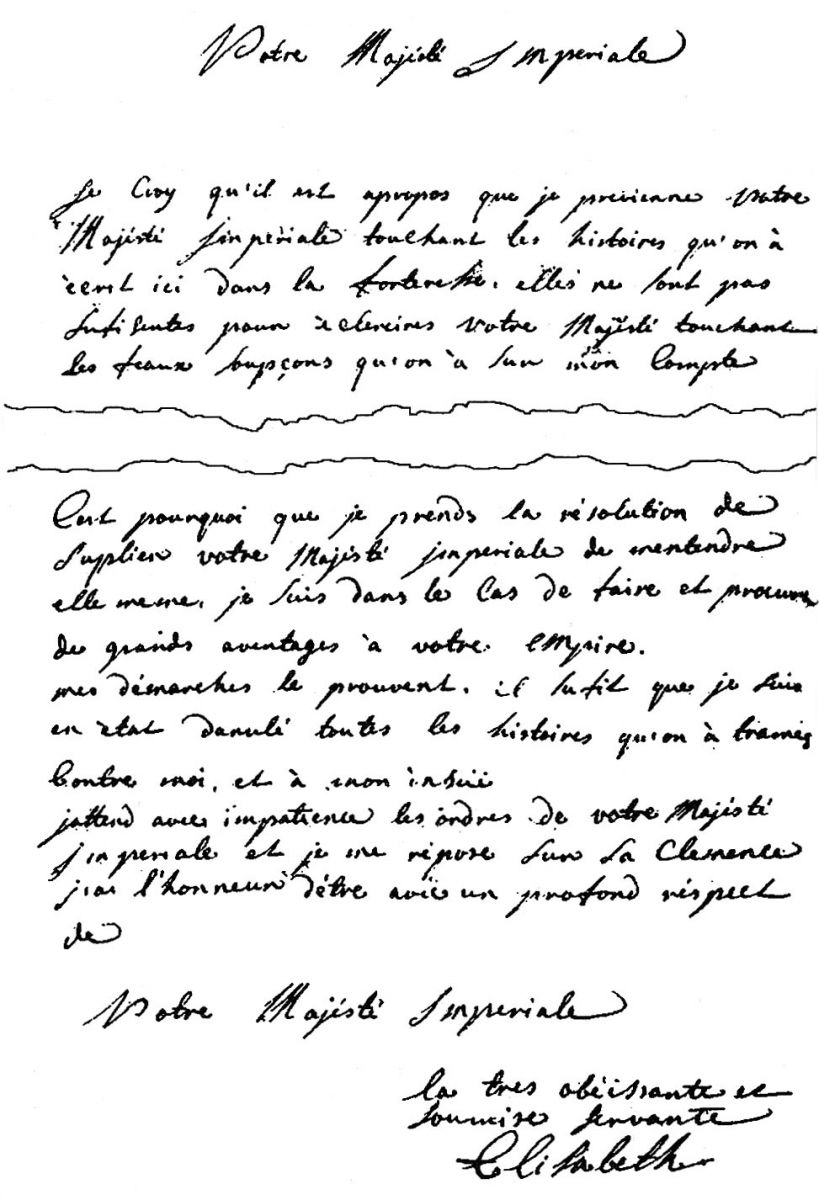 Votre Majésté Imperiale
Je Croy qu'il est apropos que je previenne votre
Majésté Imperiale touchant les histoires qu'on à
ècrit ici dans la forteresse. elles ne sont pas
sufisentes pour èclereires votre Majésté touchant
les feaux soupçons qu'on à sur mon Compte
C'est pourquoi que je prends la résolution de
suplier votre Majésté imperiale de mentendre
elle meme, je suis dans le Cas de faire et procurer
de grands aventages à votre empire.
mes démarches le prouvent. il sufit que je suis
en ètat danulé toutes les histoires qu'on à tramés
Contre moi, et à mon insuü
jattend avec impatience les ordres de votre Majésté
Imperiale et je me repose sur sa Clemence
jiai l'honneur d'étre avec un profond réspect
de
Votre Majésté Imperiale
la tres obéissante et
soumise servante
Elisabeth